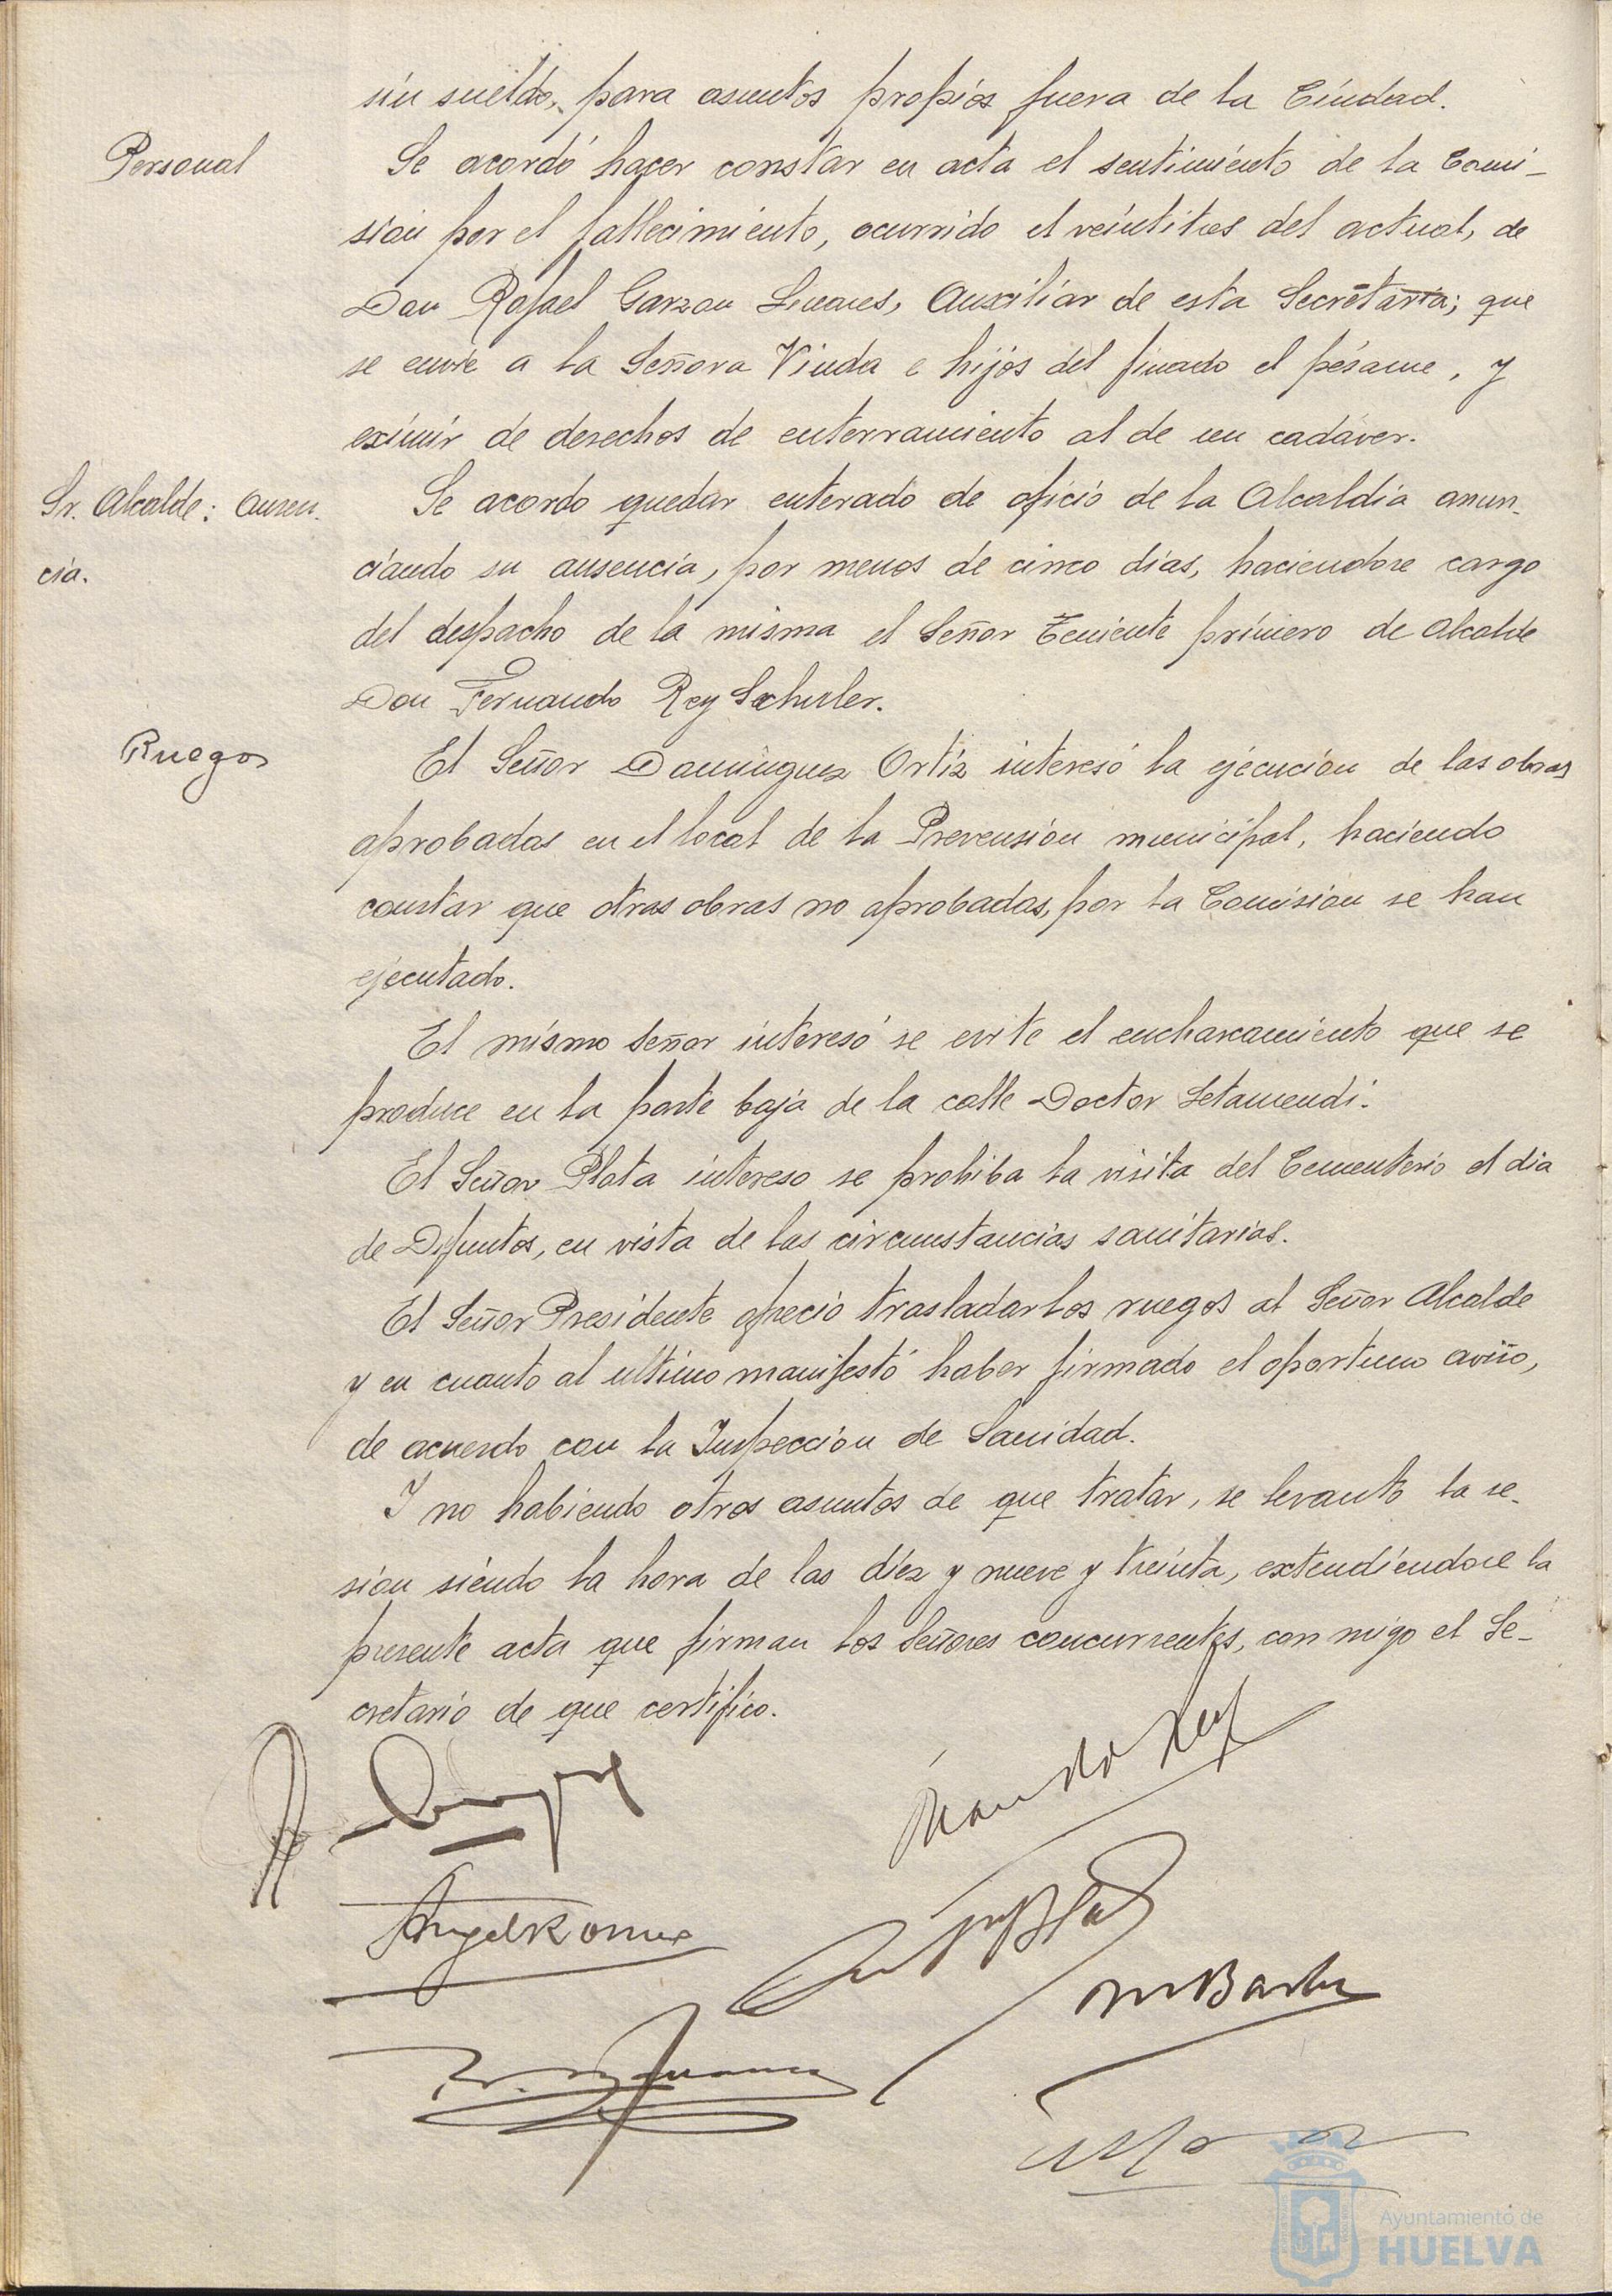 sin sueldo, para asuntos propios fuera de la Ciudad.
Personal
Se acordó hacer constar en acta el sentimiento de la Comi-
sion por el fallecimiento, ocurrido el veintitres del actual, de
Don Rafael Garzon Linares, Auxiliar de esta Secretaria; que
se envie a la Señora Viuda e hijos del finado el pésame, y
eximir de derechos de enterramiento al de un cadáver.
Sr. Alcalde: Ausen-
cia.
Se acordo quedar enterado de oficio de la Alcaldia anun-
ciando su ausencia, por menos de cinco dias, haciendose cargo
del despacho de la misma el Señor Teniente primero de Alcalde
Don Fernando Rey Schurler.
Ruegos
El Señor Dominguez Ortiz interesó la ejecucion de las obras
aprobadas en el local de la Prevension municipal, haciendo
constar que otras obras no aprobadas, por la Comision se han
ejecutado.
El mismo Señor interesó se evite el encharcamiento que se
produce en la parte baja de la calle Doctor Letamendi.
El Señor Plata intereso se prohiba la visita del Cementerio el dia
de Difuntos, en vista de las circunstancias sanitarias.
El Señor Presidente ofrecio trasladar los ruegos al Señor Alcalde
y en cuanto al ultimo manifestó haber firmado el oportuno aviso,
de acuerdo con la Inspeccion de Sanidad.
Y no habiendo otros asuntos de que tratar, se levanto la se-
sion siendo la hora de las diez y nueve y treinta, extendiendose la
presente acta que firman los Señores concurrentes, con migo el Se-
cretario de que certifico.
Angel Romero
M Barba
Ayuntamiento de
HUELVA